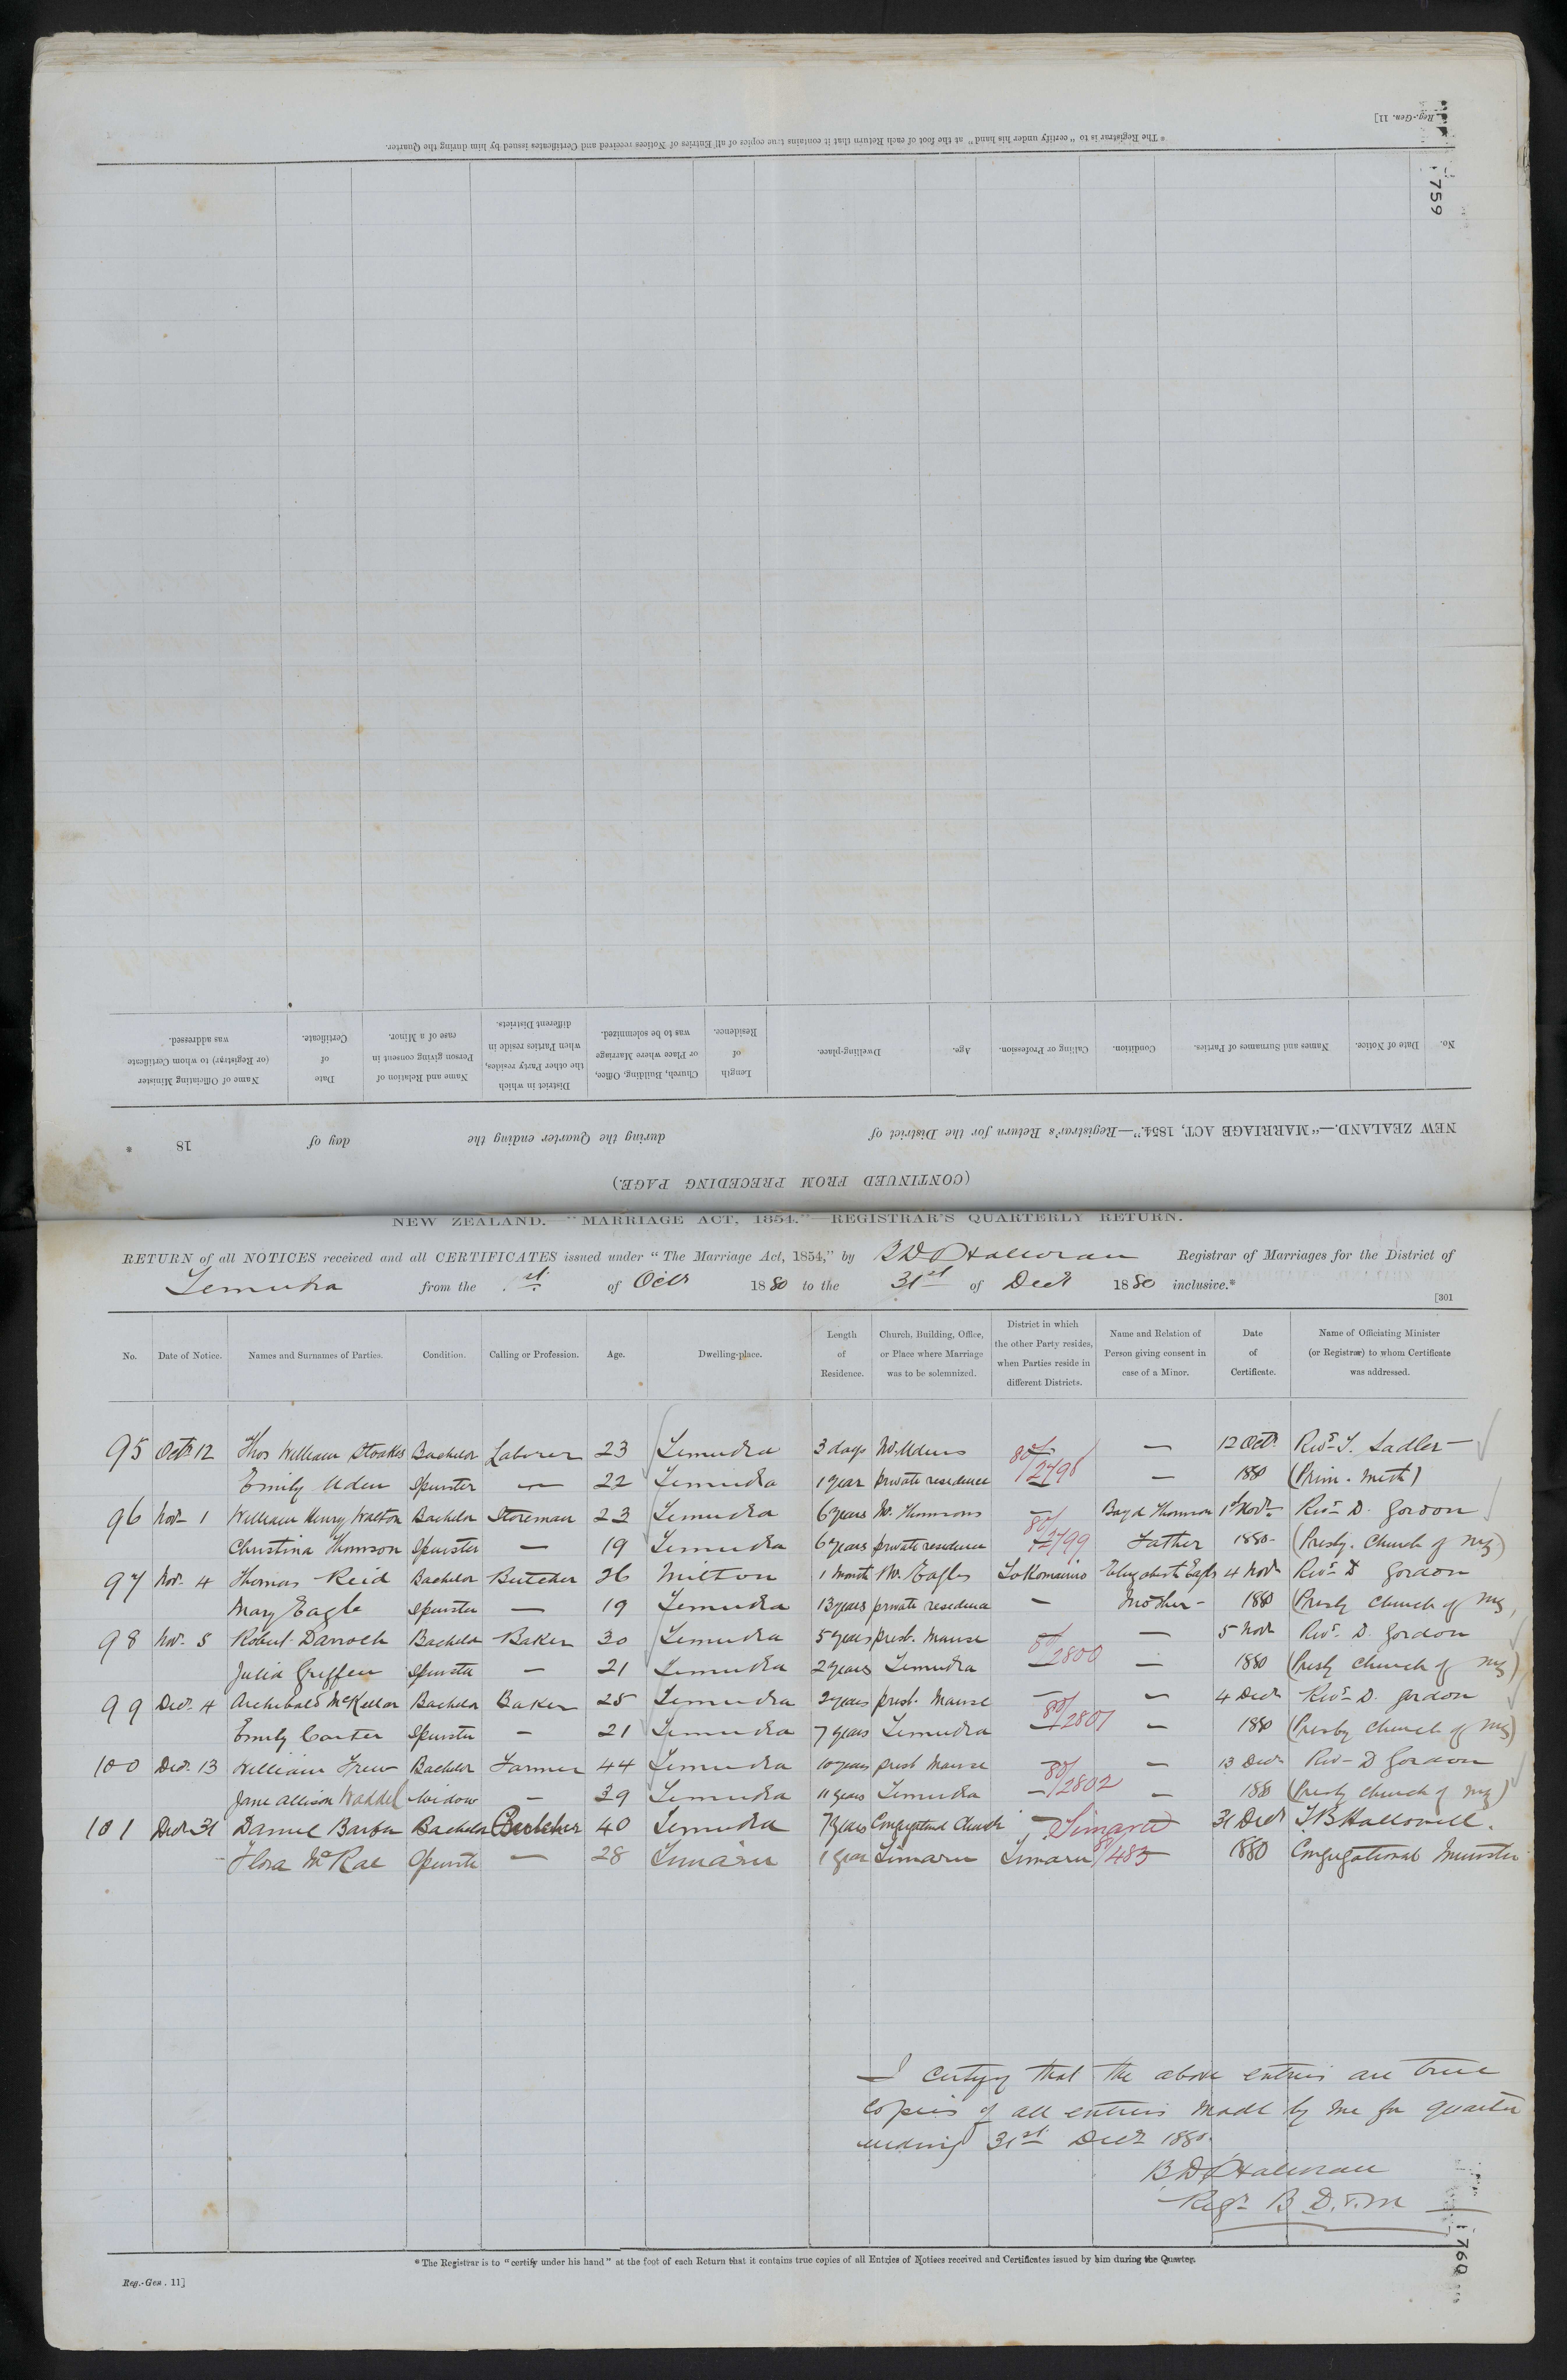 Reg.-Gen. 11]
* The Registrar is to "certify under his hand" at the foot of each Return that it contains true copies of all Entries of Notices received and Certificates issued by him during the Quarter.
759
(CONTINUED FROM PRECEDING PAGE.)
NEW ZEALAND.—"MARRIAGE ACT, 1854."—Registrar's Return for the District of during the Quarter ending the day of 18 *
No. Date of Notice. Names and Surnames of Parties. Condition. Calling or Profession. Age. Dwelling-place. Length of Residence. Church, Building, Office, or Place where Marriage was to be solemnized. District in which the other Party resides, when Parties reside in different Districts. Name and Relation of Person giving consent in case of a Minor. Date of Certificate. Name of Officiating Minister (or Registrar) to whom Certificate was addressed.
NEW ZEALAND.—"MARRIAGE ACT, 1854."—REGISTRAR'S QUARTERLY RETURN.
RETURN of all NOTICES received and all CERTIFICATES issued under "The Marriage Act, 1854," by Registrar of Marriages for the District of
Temuka from the 1st of Octr 1880 to the 31st of Decr 1880 inclusive.*
[301
No. Date of Notice. Names and Surnames of Parties. Condition. Calling or Profession. Age. Dwelling-place. Length of Residence. Church, Building, Office, or Place where Marriage was to be solemnized. District in which the other Party resides, when Parties reside in different Districts. Name and Relation of Person giving consent in case of a Minor. Date of Certificate. Name of Officiating Minister (or Registrar) to whom Certificate was addressed.
95 Octr 12 Thos William Stoakes Bachelor Laborer 23 Temuka 3 days Mr. Adens — — 12 Octr Revd. J. Sadler
Emily Aden Spinster — 22 Temuka 1 year private residence 80/2798 — 1880 (Prim. Meth)
96 Novr 1 William Henry Walton Bachelor Storeman 23 Temuka 6 years Mr. Thomsons — Boyd Thomson 1st Novr Revd D. Gordon
Christina Thomson Spinster — 19 Temuka 6 years private residence 80/2799 Father 1880 (Presby. Church of NZ)
97 Nov. 4 Thomas Reid Bachelor Butcher 26 Milton 1 month Mr. Eagles Elizabeth Eagle 4 Novr Revd D Gordon
Mary Eagle Spinster — 19 Temuka 13 years private residence — Mother 1880 (Presby Church of NZ)
98 Nov. 5 Robert Darroch Bachelor Baker 30 Temuka 5 years presb. Manse — — 5 Novr Revd. D. Gordon
Julia Griffen Spinster — 21 Temuka 2 years Temuka 80/2800 — 1880 (Presby Church of NZ)
99 Decr. 4 Archibald McKellar Bachelor Baker 25 Temuka 2 years presb. Manse — — 4 Decr Revd D. Gordon
Emily Carter Spinster — 21 Temuka 7 years Temuka 80/2801 — 1880 (Presby Church of NZ)
100 Decr. 13 William Frew Bachelor Farmer 44 Temuka 10 years presb Manse — — 13 Decr Revd D Gordon
Jane Allison Waddel Widow — 39 Temuka 11 years Temuka 80/2802 — 1880 (Presby Church of NZ)
101 Decr 31 Daniel Barber Bachelor Butcher 40 Temuka 7 years Congregational Church — Timaru 31 Decr Hallowell.
Flora McRae Spinster — 28 Timaru 1 year Timaru Timaru 80/483 1880 Congregational Minister
I certify that the above entries are true
copies of all entries made by me for quarter
ending 31st Decr 1880.
Regr B. D. & M
760
* The Registrar is to "certify under his hand" at the foot of each Return that it contains true copies of all Entries of Notices received and Certificates issued by him during the Quarter.
Reg.-Gen. 11]